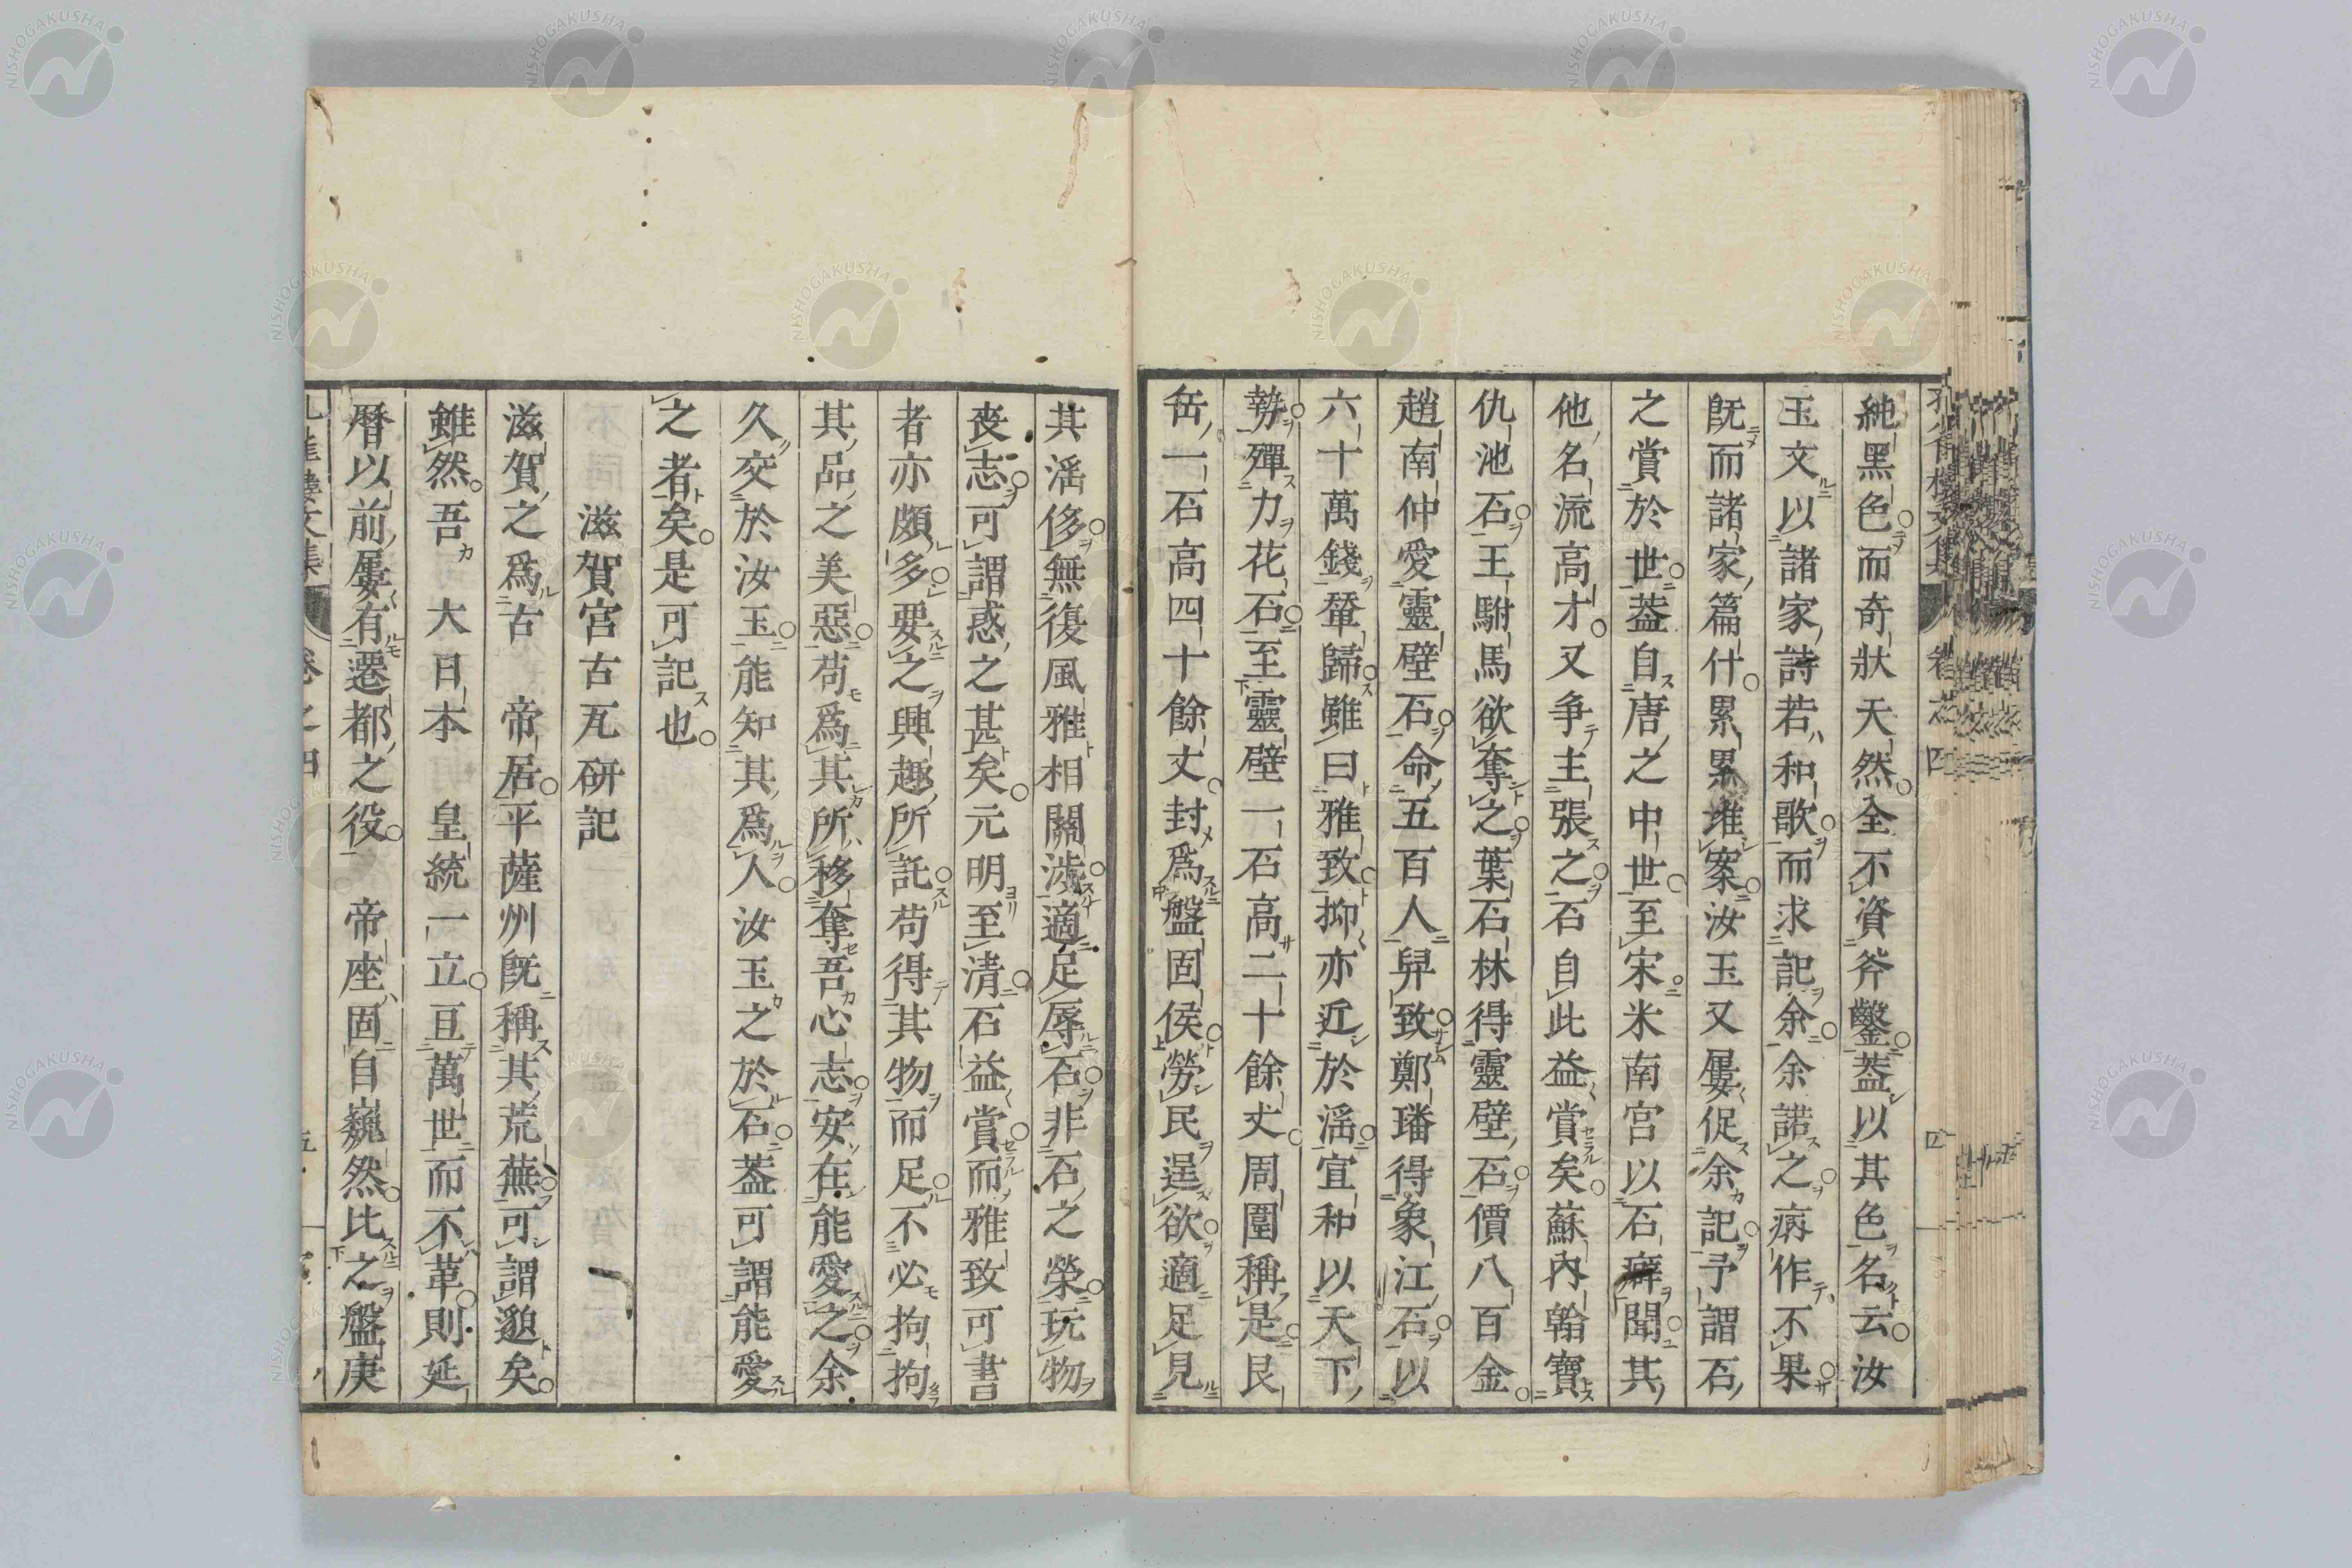 純黑色而奇狀天然全不資斧鑿葢以其色名云汝
玉文以諸家詩若和歌而求記余余諾之病作不果
旣而諸家篇什累累堆案汝玉又屢促余記予謂石
之賞於世葢自唐之中世至宋米南宮以石癖聞其
他名流高才又爭主張之石自此益賞矣蘇內翰寶
仇池石王駙馬欲奪之葉石林得靈壁石價八百金
趙南仲愛靈壁石命五百人舁致鄭璠得象江石以
六十萬錢輦歸雖曰雅致抑亦近於滛宣和以天下
勢殫力花石至靈壁一石高二十餘丈周圍稱是艮
岳一石高四十餘丈封爲盤固侯勞民逞欲適足見
其滛侈無復風雅相關涉適足辱石非石之榮玩物
喪志可謂惑之甚矣元明至淸石益賞而雅致可書
者亦頗多要之興趣所託苟得其物而足不必拘拘
其品之美惡苟爲其所移奪吾心志安在能愛之余
久交於汝玉能知其爲人汝玉之於石葢可謂能愛
之者矣是可記也
滋賀宮古瓦硏記
滋賀之爲古 帝居平薩州旣稱其荒蕪可謂邈矣
雖然吾 大日本 皇統一立亘萬世而不革則延
曆以前屢有遷都之役 帝座固自巍然比之盤庚